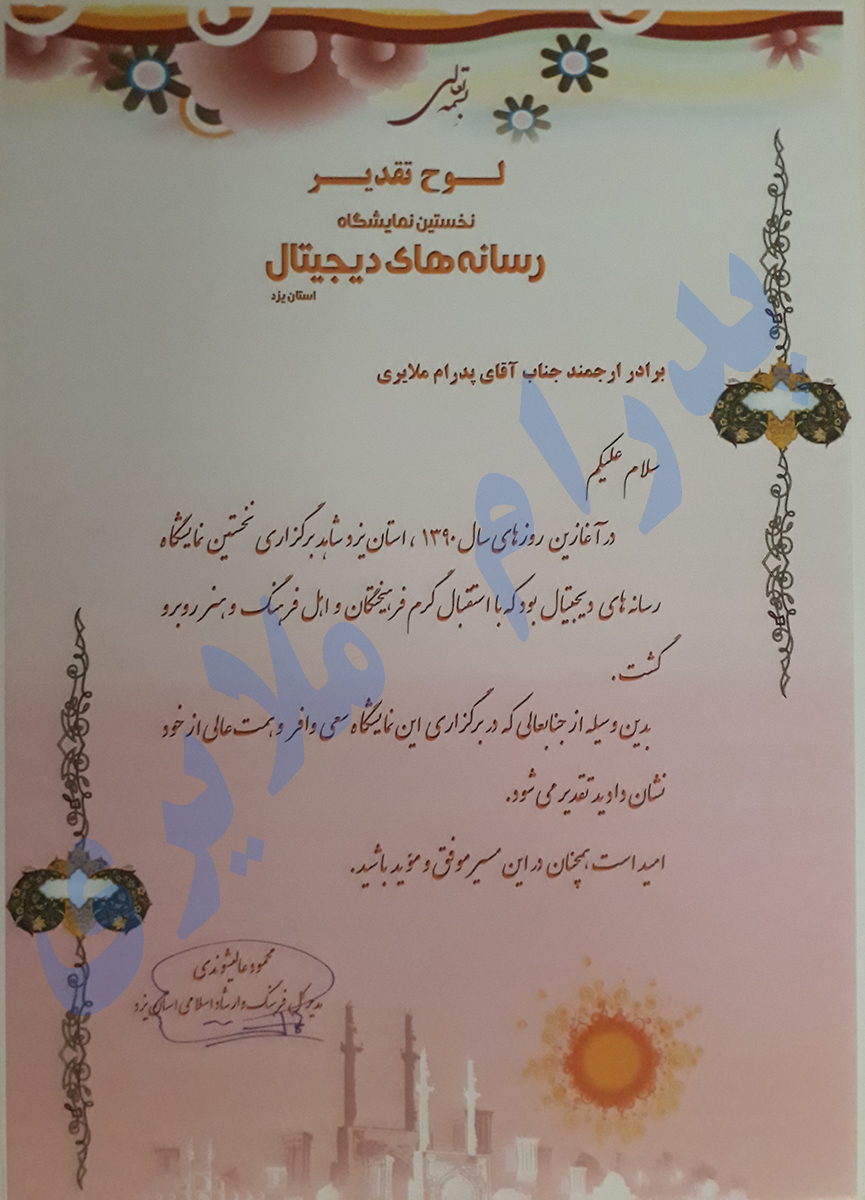 بسمه تعالی
لوح تقدیر
نخستین نمایشگاه
رسانه‌های دیجیتال
استان یزد
برادر ارجمند جناب آقای پدرام ملایری
سلام علیکم
در آغازین روزهای سال ۱۳۹۰، استان یزد شاهد برگزاری نخستین نمایشگاه
رسانه های دیجیتال بود که با استقبال گرم فرهیختگان و اهل فرهنگ و هنر روبرو
گشت.
بدین وسیله از جنابعالی که در برگزاری این نمایشگاه سعی وافر و همت عالی از خود
نشان دادید تقدیر می شود.
امید است همچنان در این مسیر موفق و مؤید باشید.
محمود عالیشوندی
مدیر کل فرهنگ و ارشاد اسلامی استان یزد
پدرام ملایری